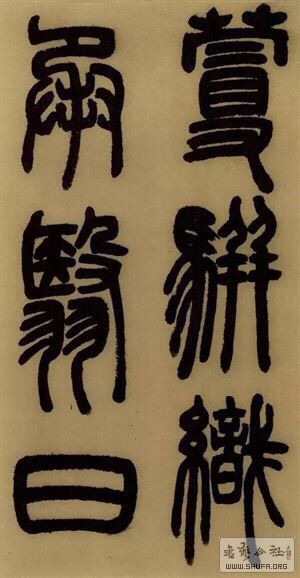 蔓駢織
承翳日
書藝公社
WWW.SHUFA.ORG